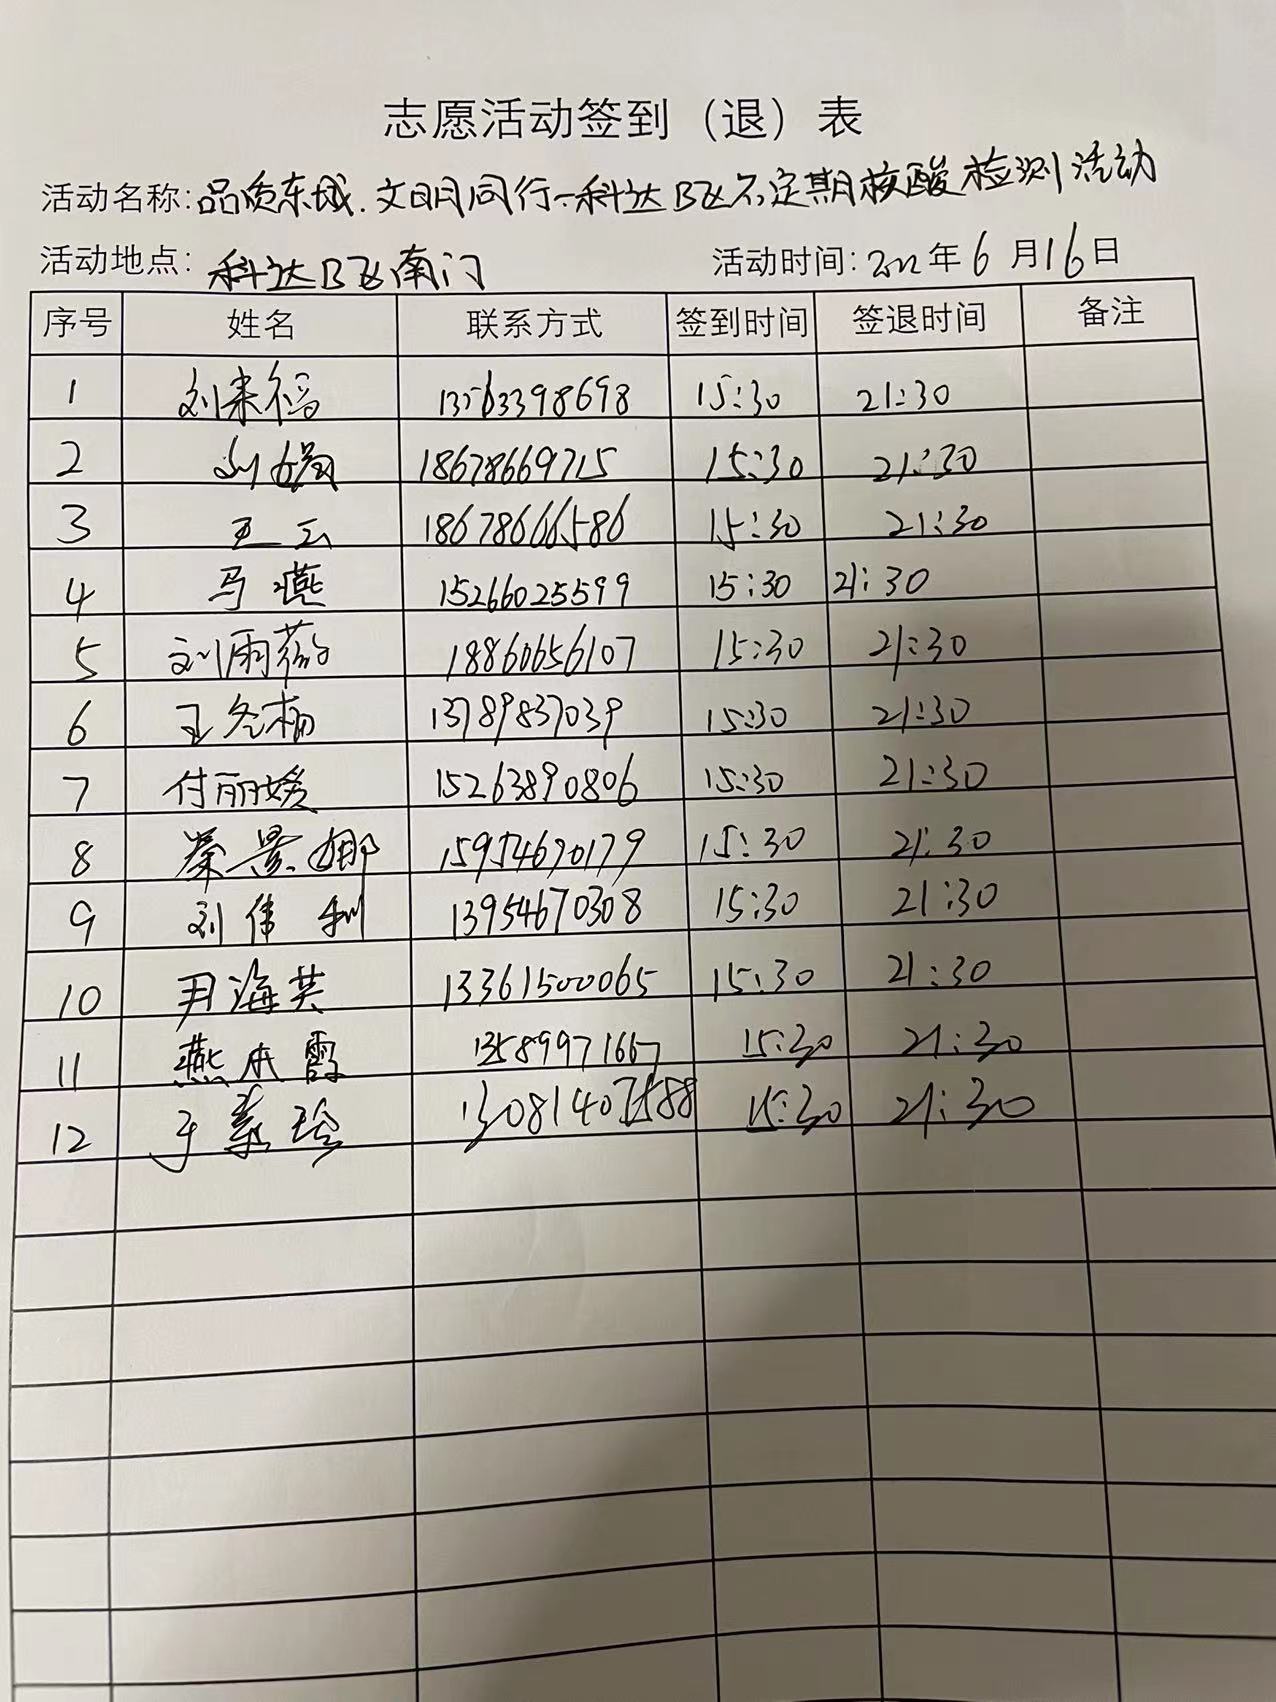 志愿活动签到（退）表
活动名称: 品质东城.文明同行-科达B区不定期核酸检测活动
活动地点: 科达B区南门 活动时间: 2022年6月16日
序号 姓名 联系方式 签到时间 签退时间 备注
1 刘来福 13563398698 15:30 21:30
2 刘娟 18678669715 15:30 21:30
3 王云 18678666586 15:30 21:30
4 马燕 15266025599 15:30 21:30
5 刘雨薇 18860656107 15:30 21:30
6 王冬梅 13789837039 15:30 21:30
7 付丽媛 15263890806 15:30 21:30
8 秦景娜 15954670179 15:30 21:30
9 刘伟利 13954670308 15:30 21:30
10 尹海英 13361500065 15:30 21:30
11 燕本霞 13589971667 15:30 21:30
12 于素珍 15:30 21:30